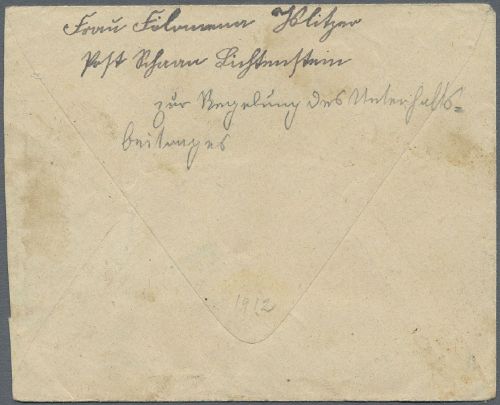 Frau Filomena Wlitzer
Post Schaan Lichtenstein
zur Regelung des Unterhalts-
beitrages
1912